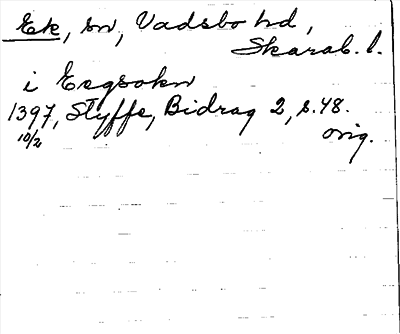 Ek, sn, Vadsbo hd,
Skarab. l.
i Eegsokn
1397, Styffe, Bidrag 2, s. 48.
10/2 orig.